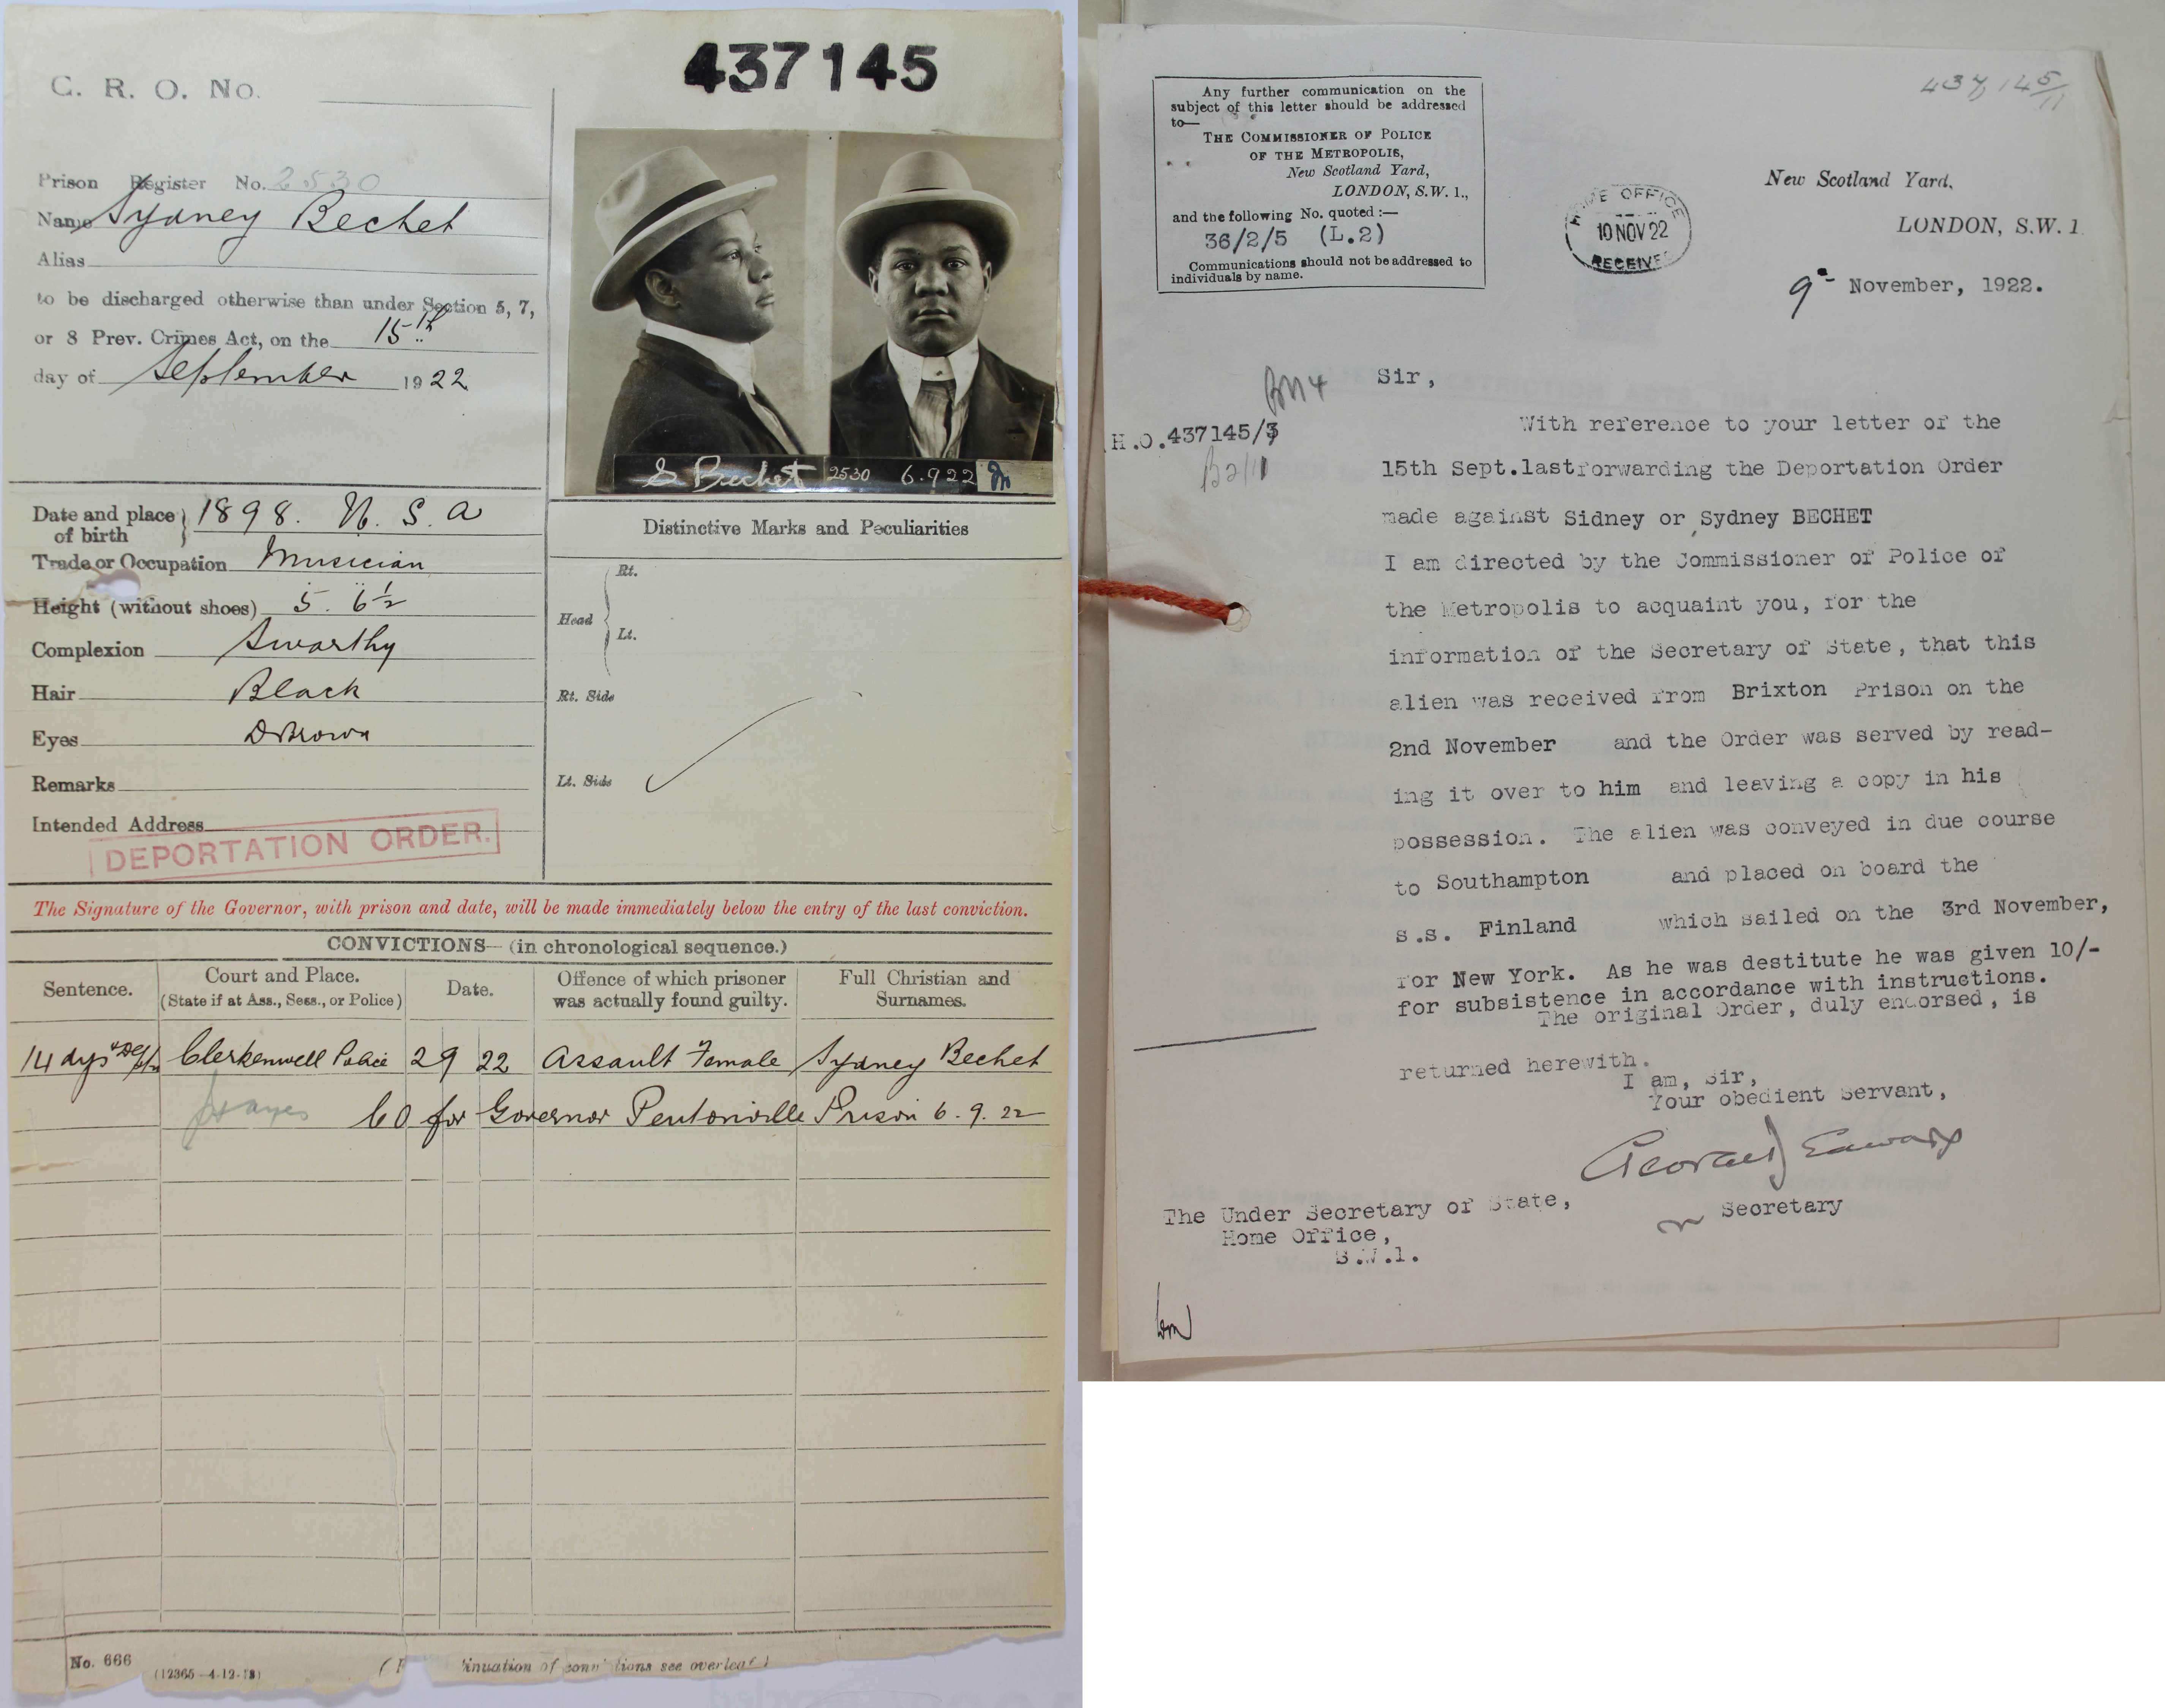 C. R. O. No.
437145
Prison Register No. 2530
Name Sydney Bechet
Alias
to be discharged otherwise than under Section 5, 7,
or 8 Prev. Crimes Act, on the 15th
day of September 1922
S Bechet 2530 6.9.22
Date and place of birth 1898. U.S.A
Trade or Occupation Musician
Height (without shoes) 5. 6½
Complexion Swarthy
Hair Black
Eyes D Brown
Remarks
Intended Address
DEPORTATION ORDER.
Distinctive Marks and Peculiarities
Head
Rt.
Lt.
Rt. Side
Lt. Side
The Signature of the Governor, with prison and date, will be made immediately below the entry of the last conviction.
CONVICTIONS—(in chronological sequence.)
Sentence.
Court and Place.
(State if at Ass., Sess., or Police)
Date.
Offence of which prisoner
was actually found guilty.
Full Christian and
Surnames.
14 dys Clerkenwell Police 2 9 22 Assault Female Sydney Bechet
for Governor Pentonville Prison 6.9.22
No. 666
(12365—4-12-18)
see overleaf)
437,145/11
Any further communication on the
subject of this letter should be addressed
to—
THE COMMISSIONER OF POLICE
OF THE METROPOLIS,
New Scotland Yard,
LONDON, S.W. 1.,
and the following No. quoted :—
36/2/5 (L.2)
Communications should not be addressed to
individuals by name.
HOME OFFICE
10 NOV 22
RECEIVED
New Scotland Yard,
LONDON, S.W. 1
9 November, 1922.
Sir,
H.O.437145/3
With reference to your letter of the
15th Sept.lastforwarding the Deportation Order
made against Sidney or Sydney BECHET
I am directed by the Commissioner of Police of
the Metropolis to acquaint you, for the
information of the Secretary of State, that this
alien was received from Brixton Prison on the
2nd November and the Order was served by read-
ing it over to him and leaving a copy in his
possession. The alien was conveyed in due course
to Southampton and placed on board the
s.s. Finland which sailed on the 3rd November,
for New York. As he was destitute he was given 10/-
for subsistence in accordance with instructions.
The original Order, duly endorsed, is
returned herewith.
I am, Sir,
Your obedient Servant,
Secretary
The Under Secretary of State,
Home Office,
S.W.1.